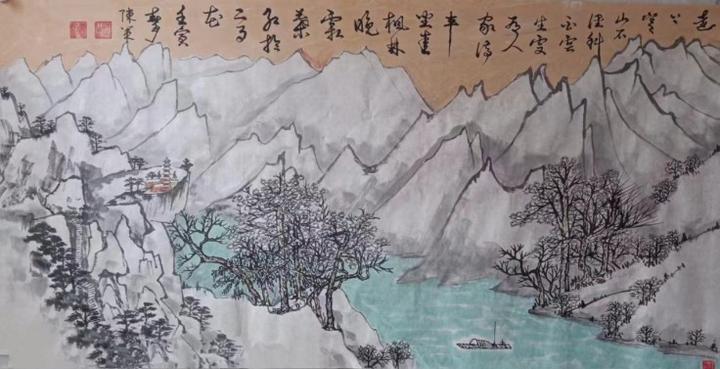 远
上
寒
山石
径斜
白雲
生處
有人
家停
车
坐爱
枫林
晚
霜
葉
红於
二月
花
壬寅
陳